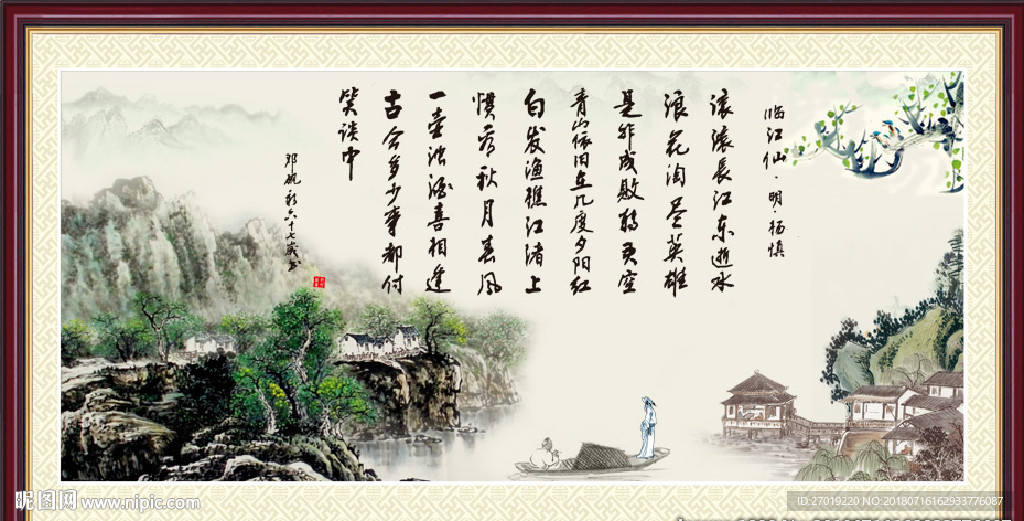 临江仙·明·杨慎
滚滚長江东逝水
浪花淘尽英雄
是非成败转头空
青山依旧在几度夕阳红
白发渔樵江渚上
惯看秋月春风
一壶浊酒喜相逢
古今多少事都付
笑谈中
六十七岁书
昵图网 www.nipic.com
ID:27019220 NO:20180716162933776087